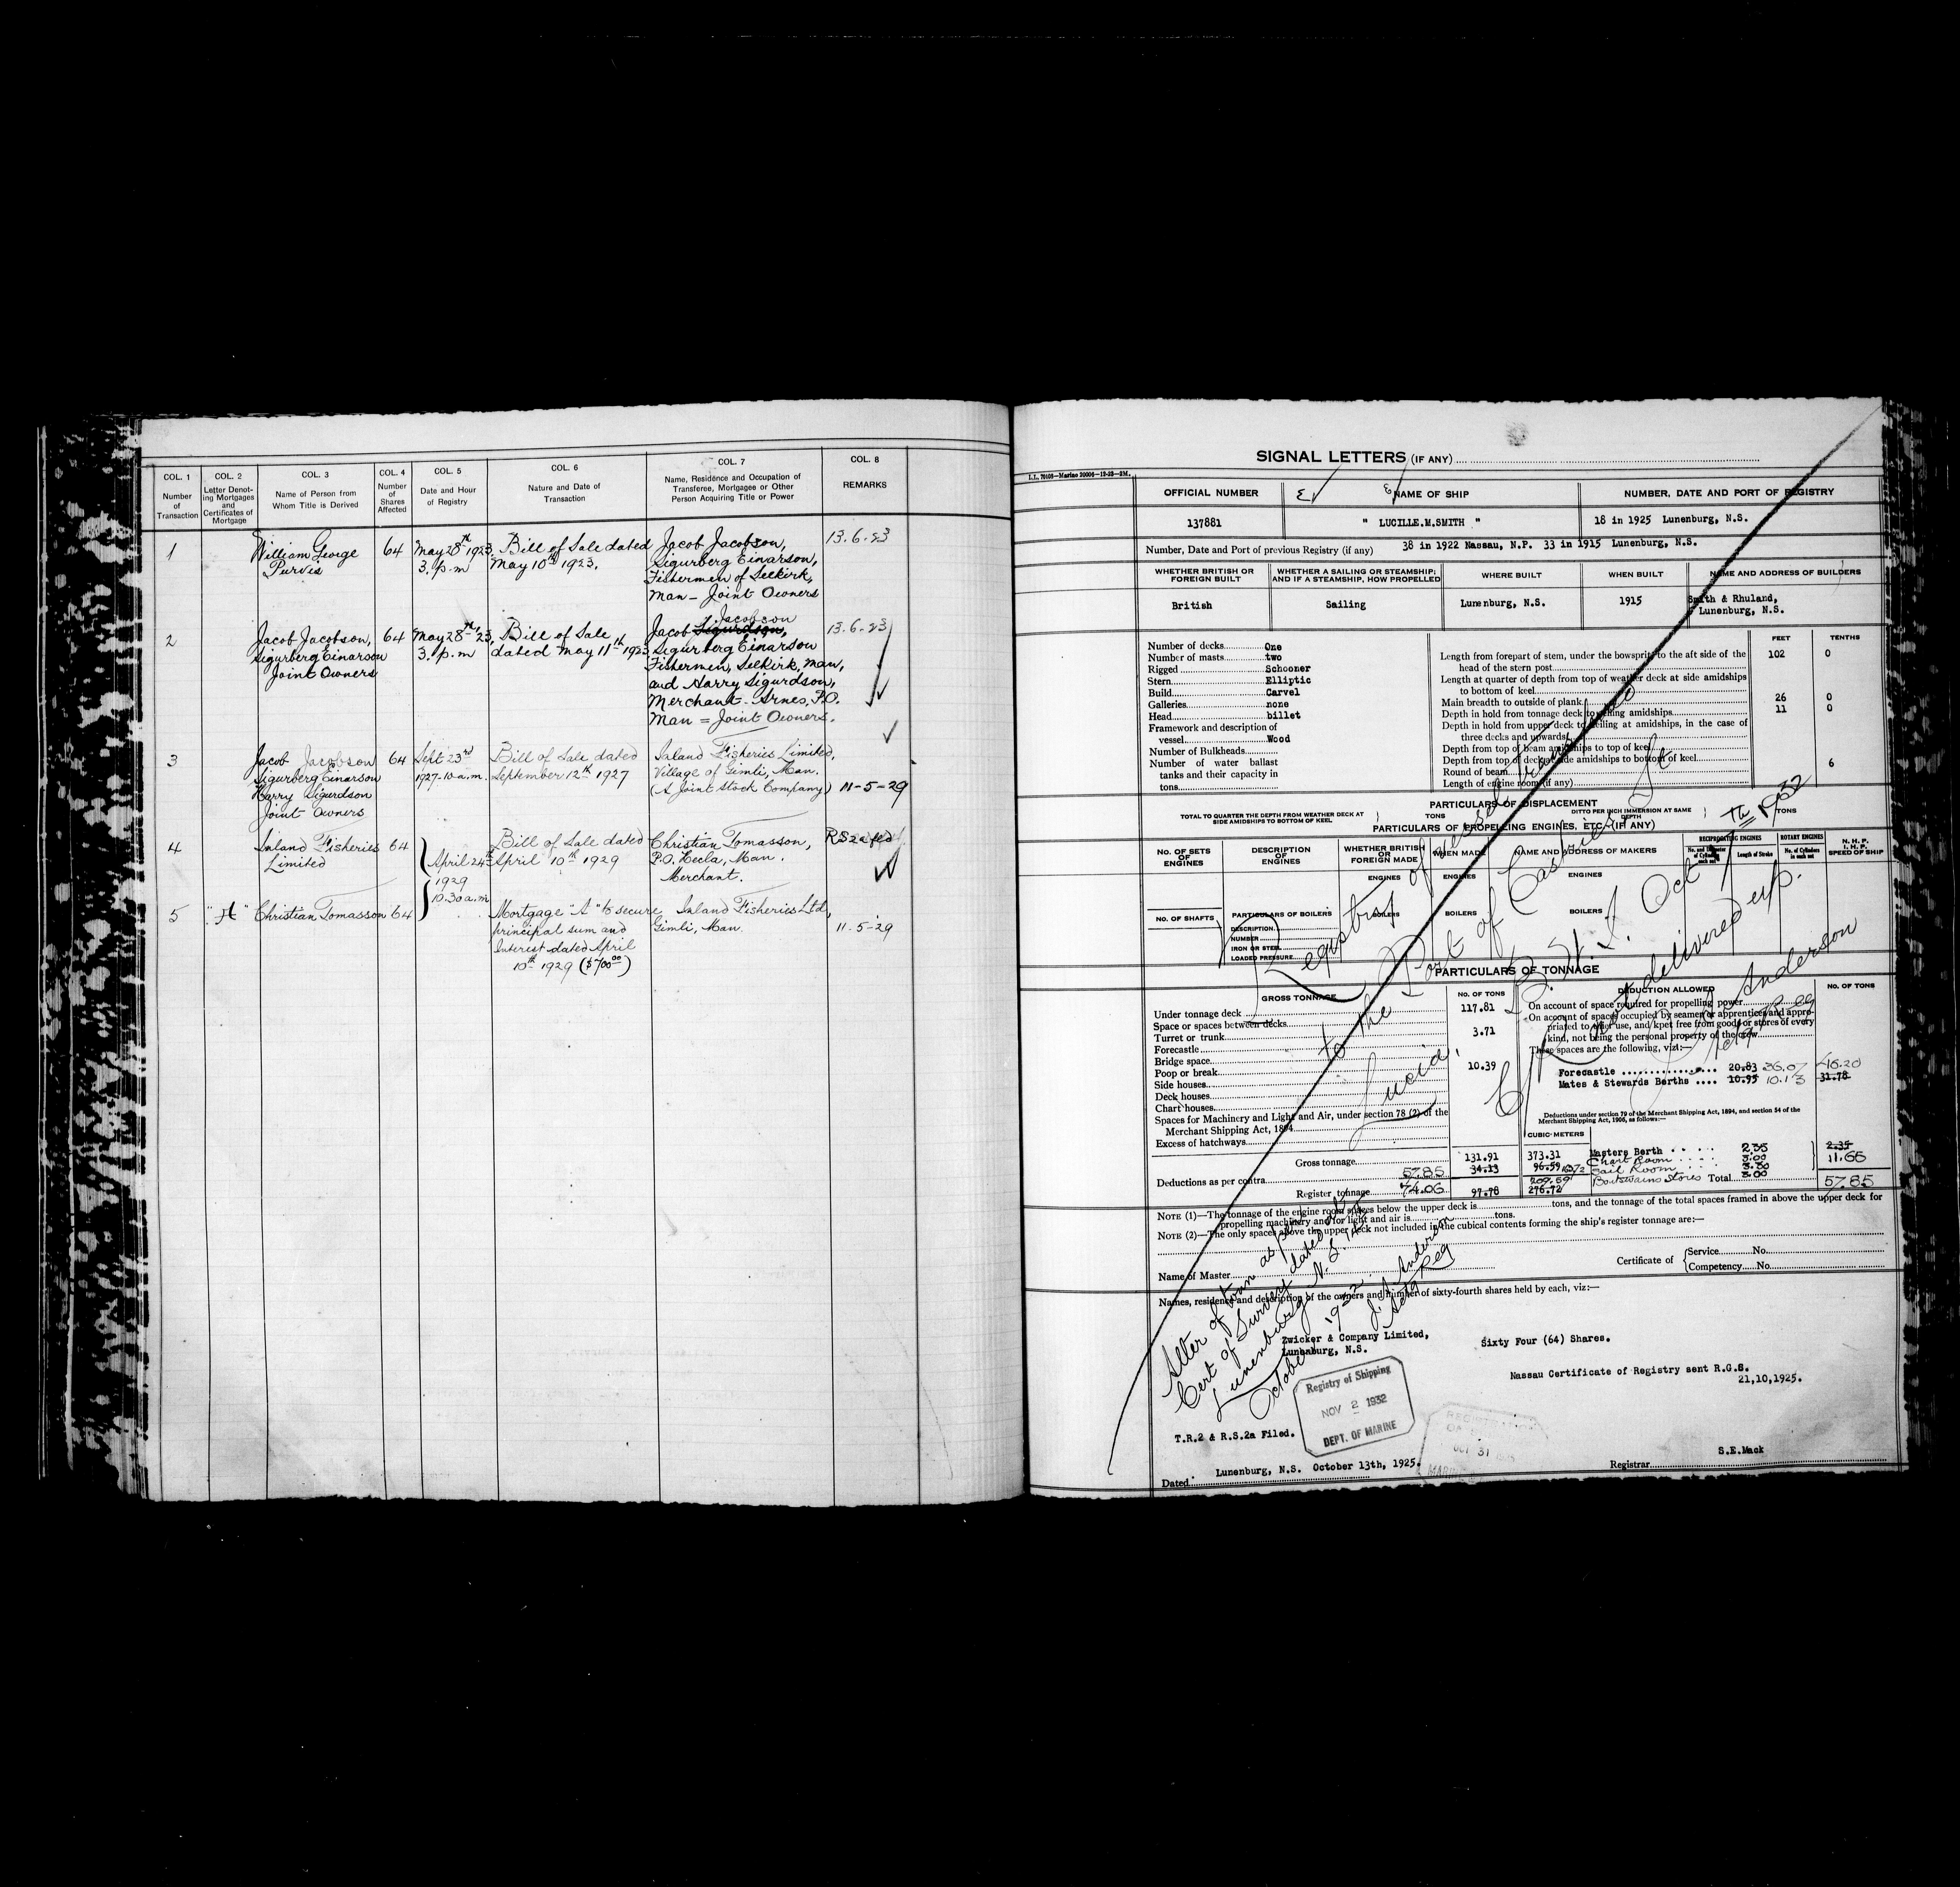 COL. 1
Number
of
Transaction
COL. 2
Letter Denot-
ing Mortgages
and
Certificates of
Mortgage
COL. 3
Name of Person from
Whom Title is Derived
COL. 4
Number
of
Shares
Affected
COL. 5
Date and Hour
of Registry
COL. 6
Nature and Date of
Transaction
COL. 7
Name, Residence and Occupation of
Transferee, Mortgagee or Other
Person Acquiring Title or Power
COL. 8
REMARKS
1
William George
Purvis
64
May 28th 1923,
3. p.m
Bill of Sale dated
May 10th 1923.
Jacob Jacobson,
Sigurberg Einarson,
Fishermen of Selkirk,
Man - Joint Owners
13.6.23
2
Jacob Jacobson,
Sigurberg Einarson
Joint Owners
64
May 28th 23,
3. p.m
Bill of Sale
dated May 11th 1923
Jacobson
Jacob Sigurdson,
Sigurberg Einarson
Fishermen, Selkirk, Man,
and Harry Sigurdson,
Merchant - Arnes, P.O.
Man = Joint Owners.
13.6.23
3
Jacob Jacobson
Sigurberg Einarson
Harry Sigurdson
Joint Owners
64
Sept 23rd
1927-10 a.m.
Bill of Sale dated
September 12th 1927
Inland Fisheries Limited,
Village of Gimli, Man.
(A Joint Stock Company)
11-5-29
4
Inland Fisheries
Limited
64
April 24th
1929
10.30 a.m
Bill of Sale dated
April 10th 1929
Christian Tomasson,
P.O. Hecla, Man.
Merchant.
RS2a fed
5
"A"
Christian Tomasson
64
Mortgage "A" to secure
principal sum and
Interest dated April
10th 1929 ($700.00)
Inland Fisheries Ltd,
Gimli, Man.
11.5-29
SIGNAL LETTERS (IF ANY)
OFFICIAL NUMBER
NAME OF SHIP
NUMBER, DATE AND PORT OF REGISTRY
137881
" LUCILLE.M.SMITH "
18 in 1925 Lunenburg, N.S.
Number, Date and Port of previous Registry (if any) 38 in 1922 Nassau, N.P. 33 in 1915 Lunenburg, N.S.
WHETHER BRITISH OR
FOREIGN BUILT
WHETHER A SAILING OR STEAMSHIP;
AND IF A STEAMSHIP, HOW PROPELLED
WHERE BUILT
WHEN BUILT
NAME AND ADDRESS OF BUILDERS
British
Sailing
Lunenburg, N.S.
1915
Smith & Rhuland,
Lunenburg, N.S.
Number of decks One
Number of masts two
Rigged Schooner
Stern Elliptic
Build Carvel
Galleries none
Head billet
Framework and description of
vessel Wood
Number of Bulkheads
Number of water ballast
tanks and their capacity in
tons
FEET
TENTHS
Length from forepart of stem, under the bowsprit to the aft side of the
head of the stern post 102 0
Length at quarter of depth from top of weather deck at side amidships
to bottom of keel
Main breadth to outside of plank 26 0
Depth in hold from tonnage deck to ceiling amidships 11 0
Depth in hold from upper deck to ceiling at amidships, in the case of
three decks and upwards
Depth from top of beam amidships to top of keel
Depth from top of deck at side amidships to bottom of keel
Round of beam 6
Length of engine room (if any)
PARTICULARS OF DISPLACEMENT
TOTAL TO QUARTER THE DEPTH FROM WEATHER DECK AT
SIDE AMIDSHIPS TO BOTTOM OF KEEL
TONS
DITTO PER INCH IMMERSION AT SAME
DEPTH
TONS
PARTICULARS OF PROPELLING ENGINES, ETC. (IF ANY)
NO. OF SETS
OF
ENGINES
DESCRIPTION
OF
ENGINES
WHETHER BRITISH
OR
FOREIGN MADE
WHEN MADE
NAME AND ADDRESS OF MAKERS
RECIPROCATING ENGINES
Length of Stroke
ROTARY ENGINES
No. of Cylinders
in each set
N.H.P.
I.H.P.
SPEED OF SHIP
ENGINES
ENGINES
ENGINES
NO. OF SHAFTS
PARTICULARS OF BOILERS
DESCRIPTION
NUMBER
IRON OR STEEL
LOADED PRESSURE
BOILERS
BOILERS
BOILERS
PARTICULARS OF TONNAGE
GROSS TONNAGE
NO. OF TONS
DEDUCTION ALLOWED
NO. OF TONS
Under tonnage deck 117.81
Space or spaces between decks
Turret or trunk 3.71
Forecastle
Bridge space
Poop or break 10.39
Side houses
Deck houses
Chart houses
Spaces for Machinery and Light and Air, under section 78 (2) of the
Merchant Shipping Act, 1894
Excess of hatchways
Gross tonnage 131.91
Deductions as per contra 57.85 34.13
Register tonnage 74.06 97.78
On account of space required for propelling power
On account of spaces occupied by seamen or apprentices and appro-
priated to their use, and kpet free from goods or stores of every
kind, not being the personal property of the crow
These spaces are the following, viz:—
Forecastle 20.83 36.07 46.20
Mates & Stewards Berths 10.95 10.13 31.78
Deductions under section 79 of the Merchant Shipping Act, 1894, and section 54 of the
Merchant Shipping Act, 1906, as follows:—
CUBIC METERS
373.31
96.59
209.59
276.72
Masters Berth 2.35 2.35
Chart Room 3.00 11.65
Sail Room 3.30
Boatswains Stores 3.00
Total 57.85
NOTE (1)—The tonnage of the engine room spaces below the upper deck is tons, and the tonnage of the total spaces framed in above the upper deck for
propelling machinery and for light and air is tons.
NOTE (2)—The only spaces above the upper deck not included in the cubical contents forming the ship's register tonnage are:—
Name of Master
Certificate of
Service No.
Competency No.
Names, residence and description of the owners and number of sixty-fourth shares held by each, viz:—
Zwicker & Company Limited,
Lunenburg, N.S.
Sixty Four (64) Shares.
Nassau Certificate of Registry sent R.G.S.
21,10,1925.
T.R.2 & R.S.2a Filed.
Registry of Shipping
NOV 2 1932
DEPT. OF MARINE
OCT 31
Dated Lunenburg, N.S. October 13th, 1925.
S.E.Mack
Registrar
Registry of vessel transferred
to the Port of Castries St
Lucia, B.W.I. Oct 7th 1932
Cert not delivered up.
Anderson
Actg Reg
Alter of tonn as per
Cert of Survey dated at
Lunenburg N.S. 1st
October 1932.
Anderson
Actg Reg